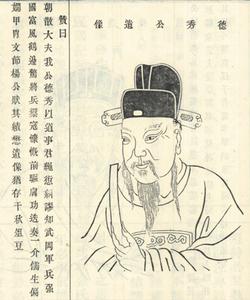 德秀公遺像
贊曰
朝散大夫我公德秀以道事君繩愆糾謬知武岡軍兵强
國富風鶴邊驚將兵禦寇慷慨前驅膚功迭奏一介儒生偏
甲胄文節楊公獻其績懋遺像猶存千秋俎豆